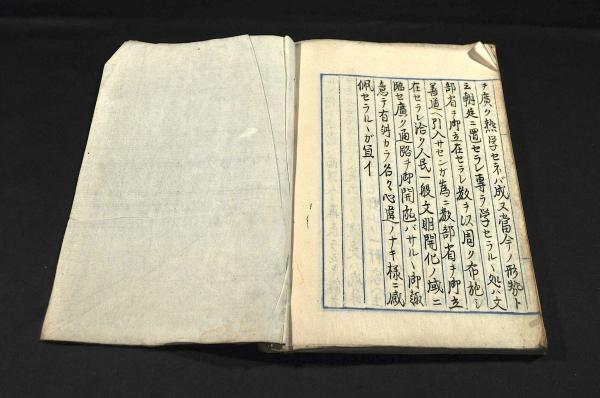 ヲ廣ク熱学セネバ成ヌ當今ノ形勢ト
云朝廷ニ置セラレ専ラ学セラルヽ処ハ文
部省ヲ御立在セラレ教ヲ以周ク布施シ
善道ヘ引入サセンガ為ニ教部省ヲ御立
在セラレ治ク人民一般文明開化ノ域ニ
臨セ廣ク通路ヲ御開弘バサルヽ御誠
意テ有外カラ名々心違ノナキ様ニ感
佩セラルヽガ宜イ